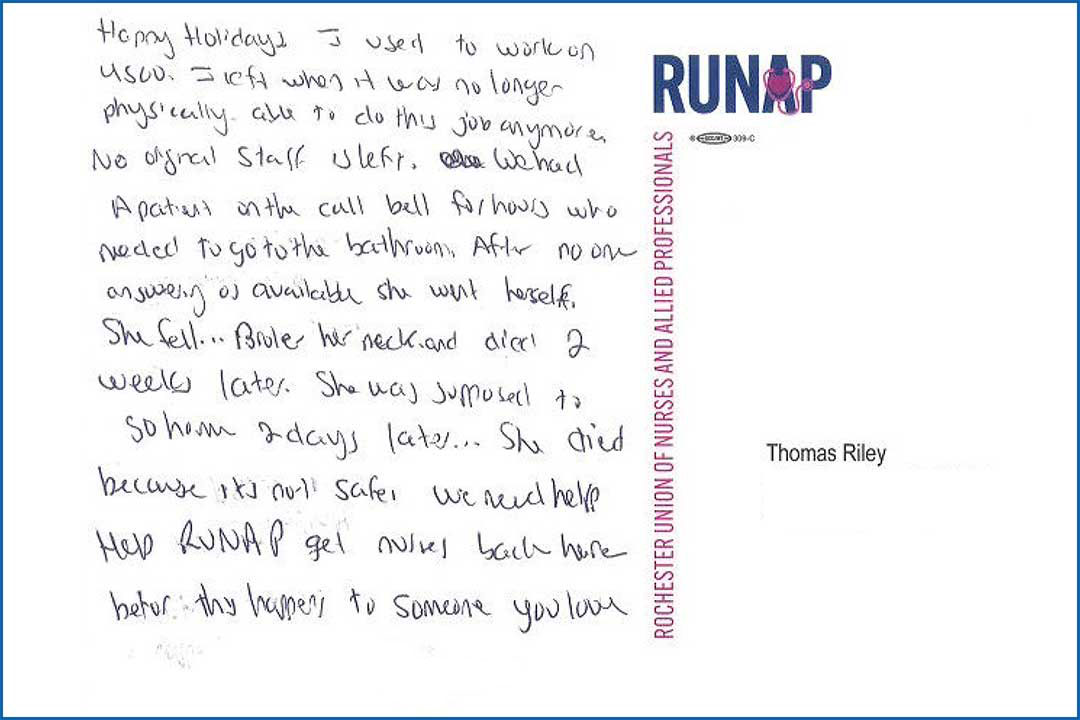 Happy Holidays I used to work on
4500. I left when it was no longer
physically able to do this job anymore.
No original Staff is left. We had
A patient on the call bell for hours who
needed to go to the bathroom. After no one
answering or available she went herself.
She fell... Broke her neck and died 2
weeks later. She was supposed to
go home 2 days later... She died
because its not safe. We need help
Help RUNAP get nurses back here
before this happens to someone you love
RUNAP
309-C
ROCHESTER UNION OF NURSES AND ALLIED PROFESSIONALS
Thomas Riley